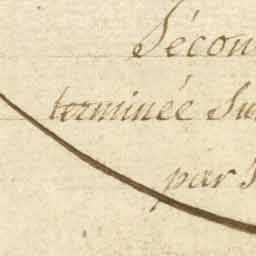 Sécon
terminée Su
par